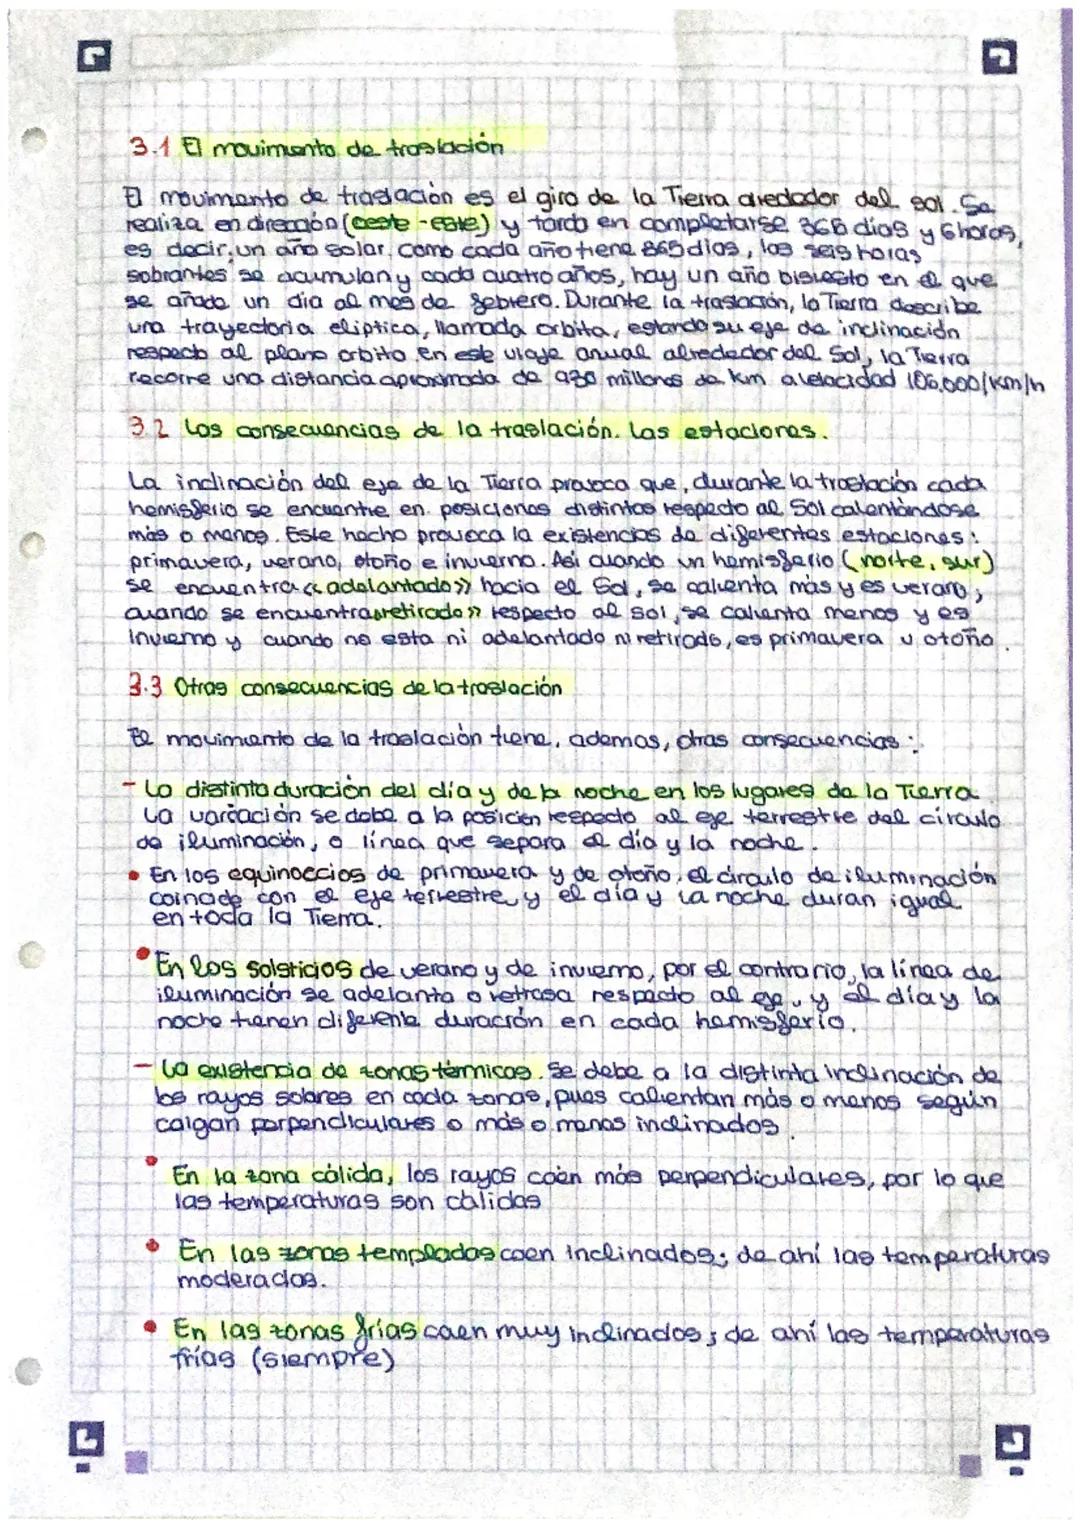 3.1 El movimiento de traslación
El movimiento de traslación es el giro de la Tierra alrededor del sol. Se
realiza en dirección (oeste - este) y tarda en completarse 365 días y 6 horas,
es decir, un año solar. Como cada año tiene 365 días, las seis horas
sobrantes se acumulan y cada cuatro años, hay un año bisiesto en el que
se añade un día al mes de febrero. Durante la traslación, la Tierra describe
una trayectoria eliptica, llamada orbita, estando su eje de inclinación
respecto al plano orbita en este viaje anual alrededor del Sol, la Tierra
recorre una distancia aproximada de 930 millones de km a velocidad 106.000/km/h
3.2 Las consecuencias de la traslación. Las estaciones.
La inclinación del eje de la Tierra provoca que, durante la traslación cada
hemisferio se encuentre en posiciones distintas respecto al Sol calentándose
más o menos. Este hecho provoca la existencias de diferentes estaciones:
primavera, verano, otoño e invierno. Así cuando un hemisferio (norte, sur)
se encuentra «adelantado» hacia el Sol, se calienta más y es verano;
cuando se encuentra «retirado» respecto al sol, se calienta menos y es
invierno y cuando no esta ni adelantado ni retirado, es primavera u otoño.
3.3 Otras consecuencias de la traslación
El movimiento de la traslación tiene, ademas, otras consecuencias:
- La distinta duración del día y de la noche en los lugares de la Tierra.
La variación se debe a la posición respecto al eje terrestre del círculo
de iluminación, o línea que separa el día y la noche.
• En los equinoccios de primavera y de otoño, el círculo de iluminación
coincide con el eje terrestre, y el día y la noche duran igual
en toda la Tierra.
• En los solsticios de verano y de invierno, por el contrario, la línea de
iluminación se adelanta o retrasa respecto al eje, y el día y la
noche tienen diferente duración en cada hemisferio.
- La existencia de zonas térmicas. Se debe a la distinta inclinación de
los rayos solares en cada zonas, pues calientan más o menos según
caigan perpendiculares o más o menos inclinados.
• En la zona cálida, los rayos caen más perpendiculares, por lo que
las temperaturas son cálidas
• En las zonas templadas caen inclinados; de ahí las temperaturas
moderadas.
• En las zonas frías caen muy inclinados; de ahí las temperaturas
frías (siempre)